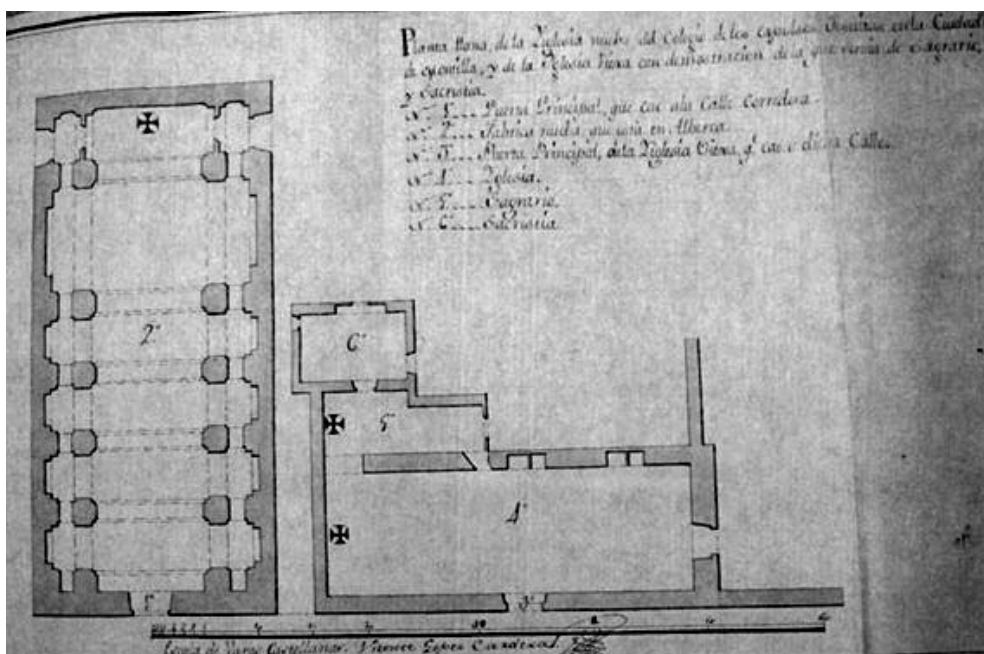 Planta llana, de la Yglesia nueba del Colegio de los en la Ciudad
de , y de la Yglesia Viexa con demostracion de la que servia de Sagrario,
y Sacristia.
N.º 1... Puerta Principal, que cae ala Calle Corredera.
N.º 2... Fabrica nueba, que está en Alberca.
N.º 3... Puerta Principal, de la Yglesia Viexa, q.e cae a dicha Calle.
N.º 4... Yglesia.
N.º 5... Sagrario.
N.º 6... Sacristia
2º
6º
5
4º
1º
3º
Escala de Varas Castellanas. Vicente Lopez Cardera.